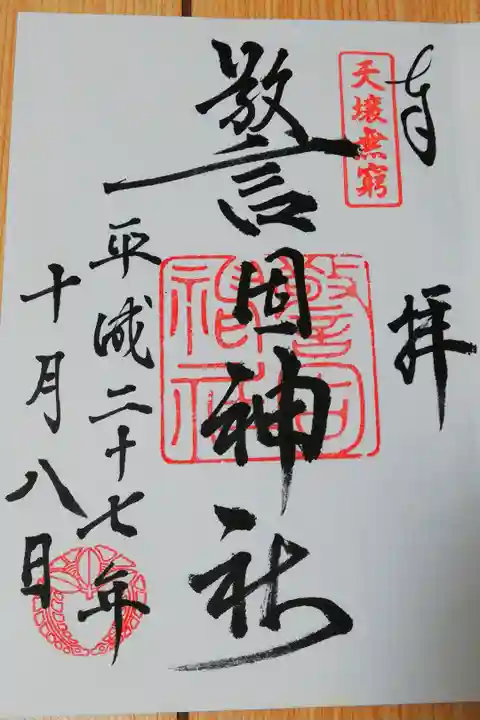 奉拝
天壌無窮
警固神社
警固神社
平成二十七年
十月八日